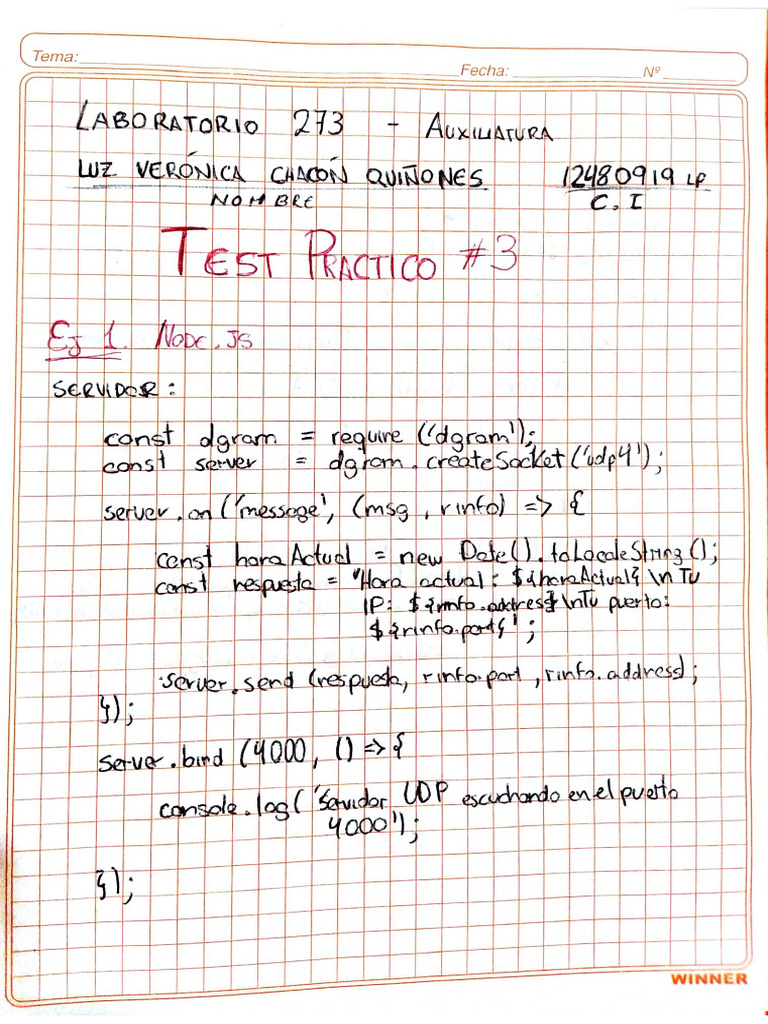 Tema:
Fecha: Nº
LABORATORIO 273 - AUXILIATURA
LUZ VERÓNICA CHACÓN QUIÑONES 12480919 LP
NOMBRE C.I
TEST PRACTICO #3
Ej 1. Node.JS
SERVIDOR:
const dgram = require ('dgram');
const server = dgram.createSocket('udp4');
server.on('message', (msg, rinfo) => {
const horaActual = new Date().toLocaleString();
const respuesta = `Hora actual: ${horaActual} \n Tu
IP: ${rinfo.address} \nTu puerto:
${rinfo.port}`;
server.send (respuesta, rinfo.port, rinfo.address);
});
server.bind (4000, () => {
console.log('Servidor UDP escuchando en el puerto
4000');
});
WINNER